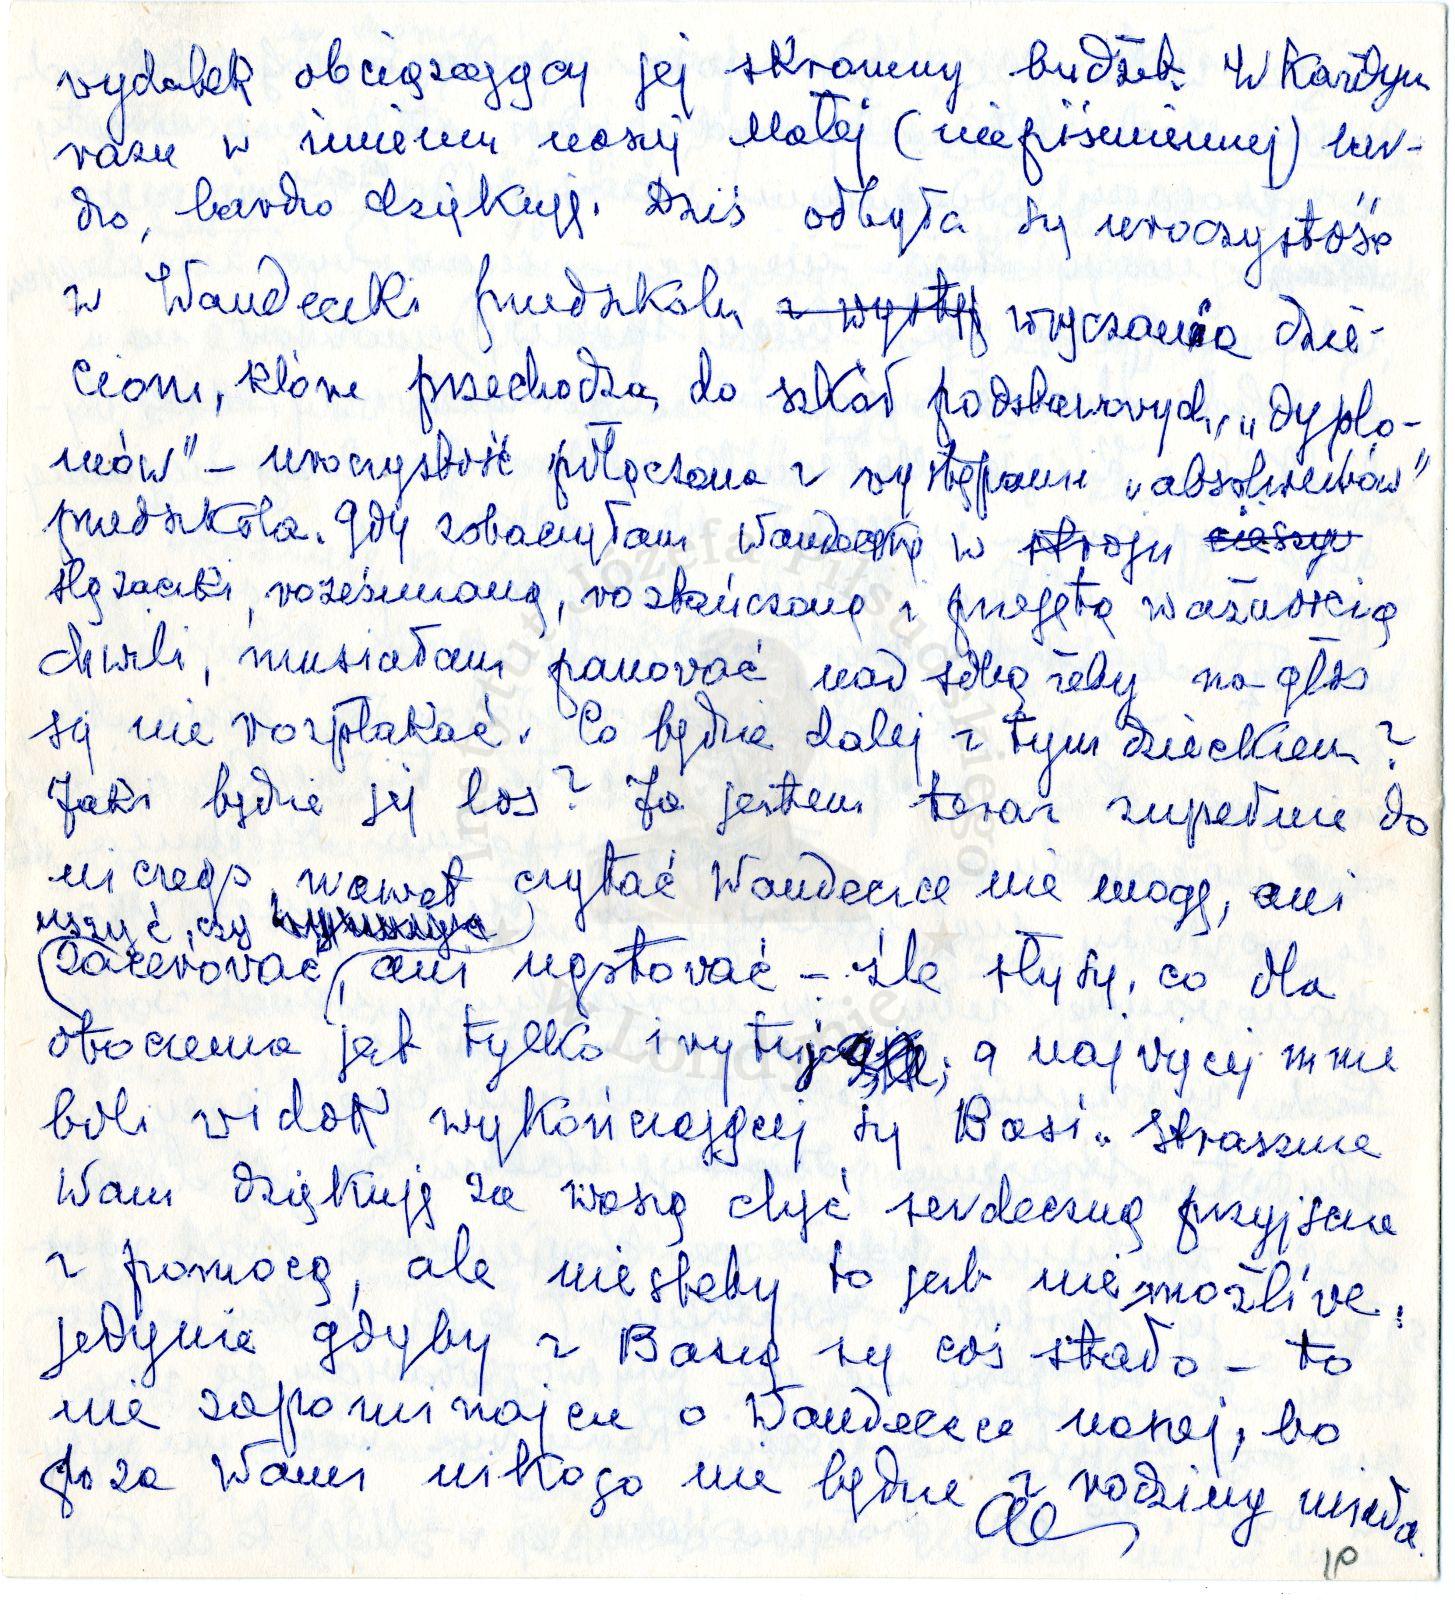 wydatek obciążający jej skromny budżet. W każdym
razie w imieniu naszej Małej (niepiśmiennej) bar-
dzo, bardzo dziękuję. Dziś odbyła się uroczystość
w Wandeczki przedszkolu z występ wręczania dzie-
ciom, które przechodzą do szkół podstawowych, „dyplo-
mów" – uroczystość połączona z występami „absolwentów"
przedszkola. Gdy zobaczyłam Wandeczkę w stroju cieszyn
ślązaczki, roześmianą, roztańczoną i przejętą ważnością
chwili, musiałam panować nad sobą żeby na głos
się nie rozpłakać. Co będzie dalej z tym dzieckiem?
Jaki będzie jej los? Ja jestem teraz zupełnie do
niczego, nawet czytać Wandeczce nie mogę, ani
uszyć, czy
zacerować, ani ugotować – źle słyszę, co dla
otoczenia jest tylko irytujące, a najwięcej mnie
boli widok wykańczającej się Basi. Strasznie
Wam dziękuję za waszą chęć serdeczną przyjścia
z pomocą, ale niestety to jest niemożliwe,
jedynie gdyby z Basią się coś stało – to
nie zapominajcie o Wandeczce naszej, bo
poza Wami nikogo nie będzie z rodziny miała.
Instytut Józefa Piłsudskiego
w Londynie